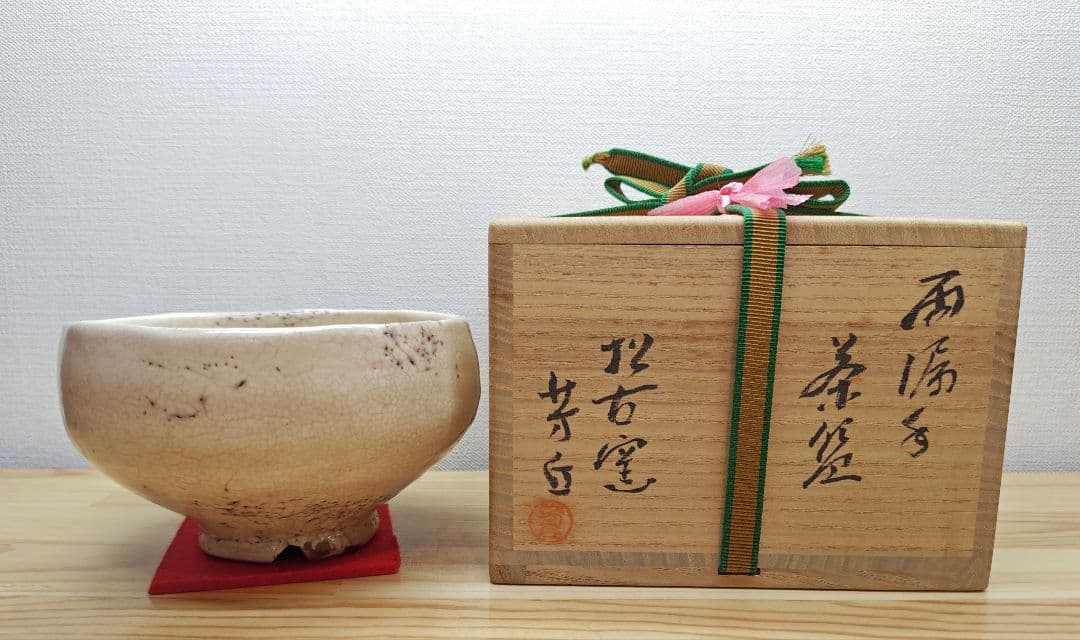 雨漏手
茶盌
松古窯
芳丘